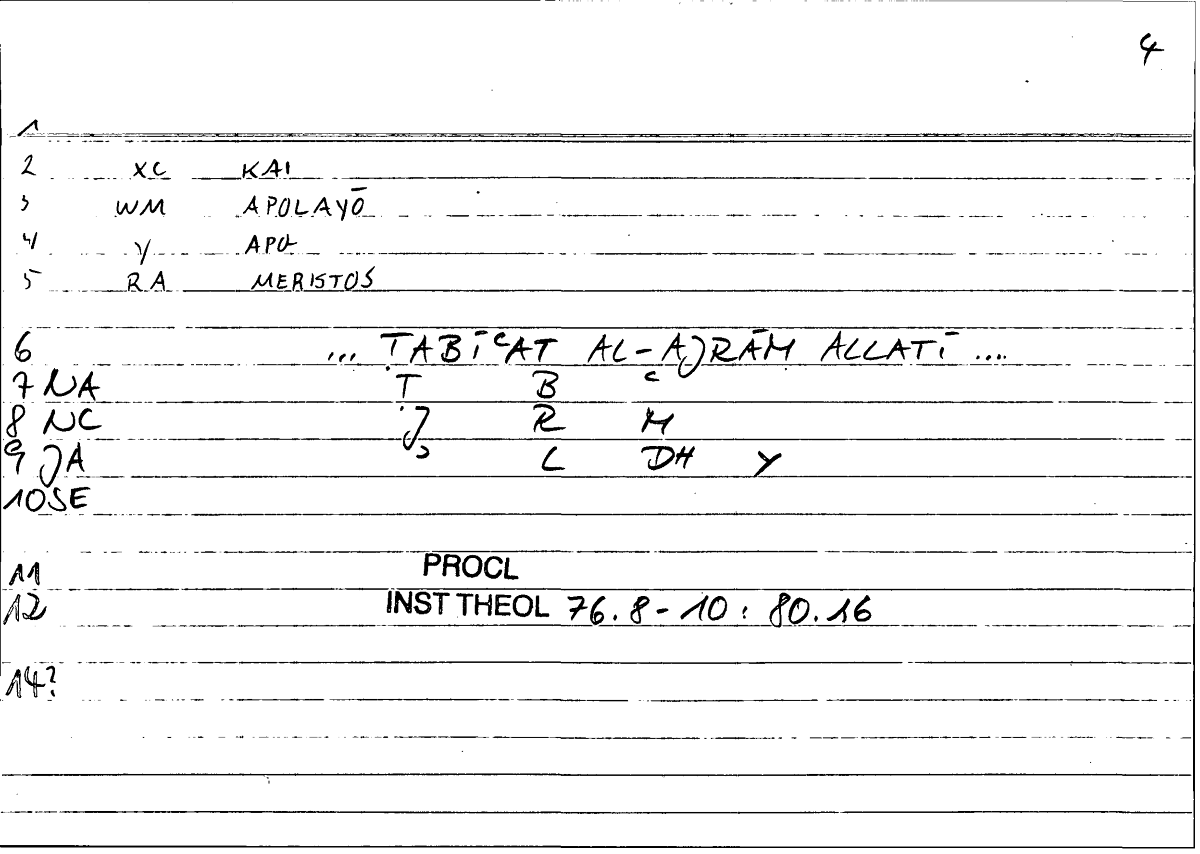 4
1
2 XC KAI
3 WM APOLAYŌ
4 Y APO
5 RA MERISTOS
6 ... ṬABĪʿAT AL-AJRĀM ALLATĪ ....
7 NA Ṭ B ʿ
8 NC J R M
9 JA ʾ L DH Y
10 SE
11 PROCL
12 INST THEOL 76.8-10 : 80.16
14?